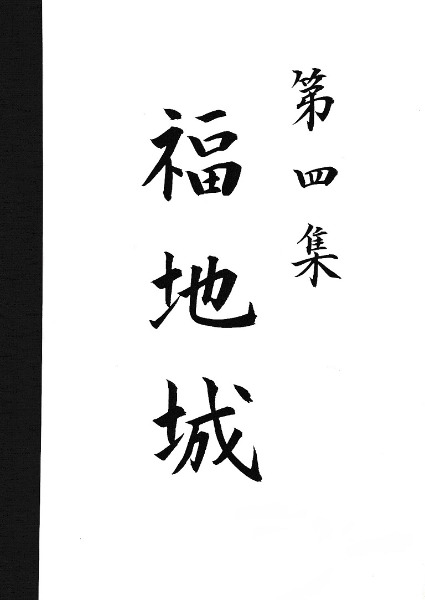 第四集
福地城